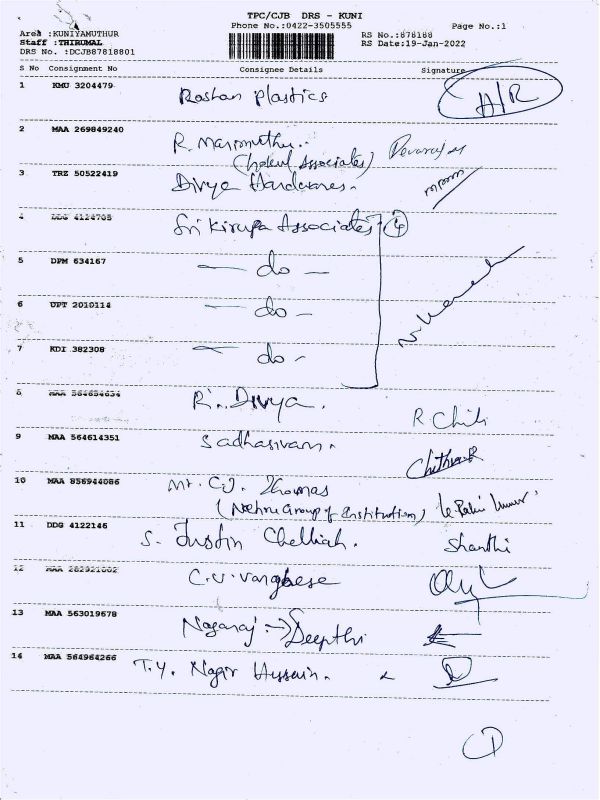 TPC/CJB DRS - KUNI
Phone No.:0422-3505555
Page No.:1
Area :KUNIYAMUTHUR
Staff :THIRUMAL
DRS No. :DCJB87818801
RS No.:878188
RS Date:19-Jan-2022
S No Consignment No Consignee Details Signature
1 KMU 3204479 Roshan Plastics A/R
2 MAA 269849240 R. Marimuthu.
(Gokul Associates) Devaraj
3 TRZ 50522419 Divya Hardwares.
4 DDG 4124705 Sri Kirupa Associates 4
5 DPM 634167 — do —
6 UPT 2010114 — do —
7 KDI 382308 — do -
8 MAA 564654654 R. Divya. R. Chili
9 MAA 564614351 Sadhasivam. Chithra R
10 MAA 856944086 Mr. C.J. Thomas
(Nehru Group of Institution)
11 DDG 4122146 S. Justin Chelliah. Shanthi
12 MAA 282921002 C.V. Varghese
13 MAA 563019678 Nagaraj → Deepthi
14 MAA 564964266 T.Y. Nagir Hussain.
1